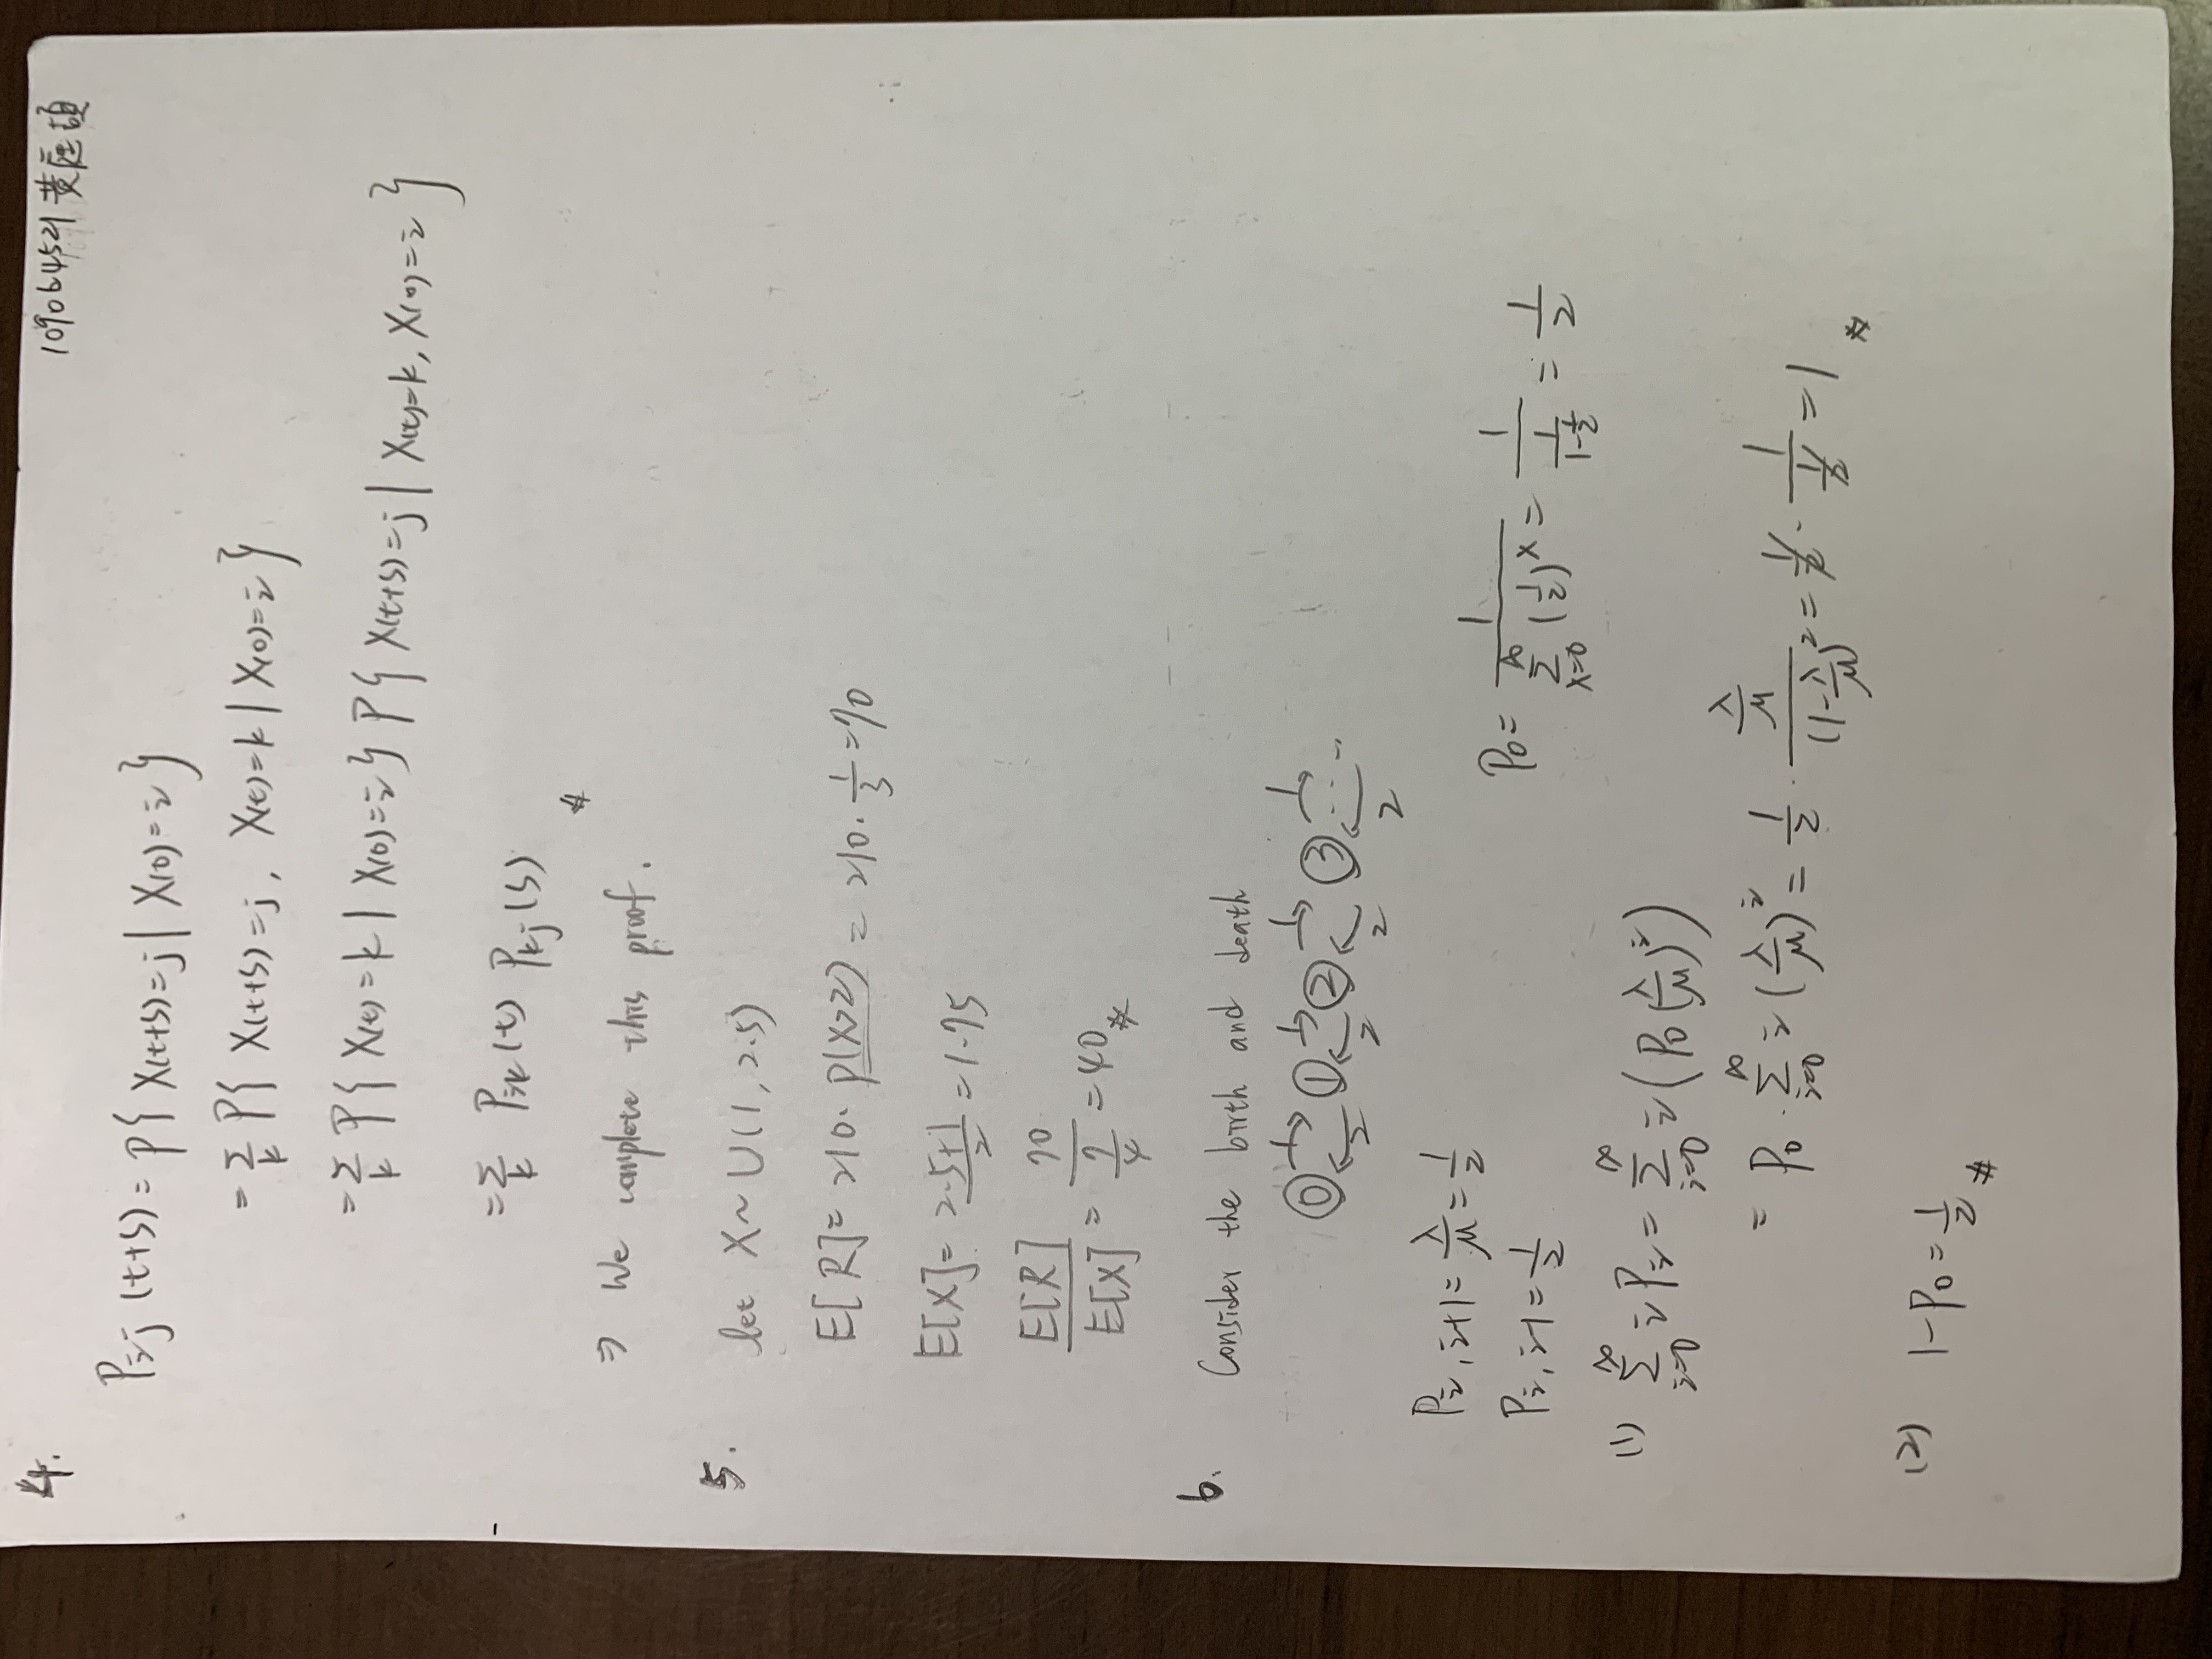 4.
109064521 黄庭碩
Pij (t+s) = P{ X(t+s)=j | X(0)=i }
= Σ_k P{ X(t+s)=j, X(t)=k | X(0)=i }
= Σ_k P{ X(t)=k | X(0)=i } P{ X(t+s)=j | X(t)=k, X(0)=i }
= Σ_k Pik(t) Pkj(s) #
⇒ We complete this proof.
5.
let X~U(1, 2.5)
E[R]= 210. P(X>2) = 210. 1/3 = 70
E[X]= (2.5+1)/2 = 1.75
E[R]/E[X] = 70/(7/4) = 40 #
6.
Consider the birth and death
1 1 1 1
0 1 2 3 ...
2 2 2 2
Pi,i+1 = λ/μ = 1/2
Pi,i-1 = 1/2
P0 = 1/(Σ_{x=0}^∞ (1/2)^x) = 1/(1/(1-1/2)) = 1/2
(1) Σ_{i=0}^∞ i Pi = Σ_{i=0}^∞ i (P0 (λ/μ)^i)
= P0 . Σ_{i=0}^∞ i (λ/μ)^i = 1/2 . (λ/μ)/(1-λ/μ)^2 = 1/2 . 1/(1/2) = 1 #
(2) 1-P0 = 1/2 #